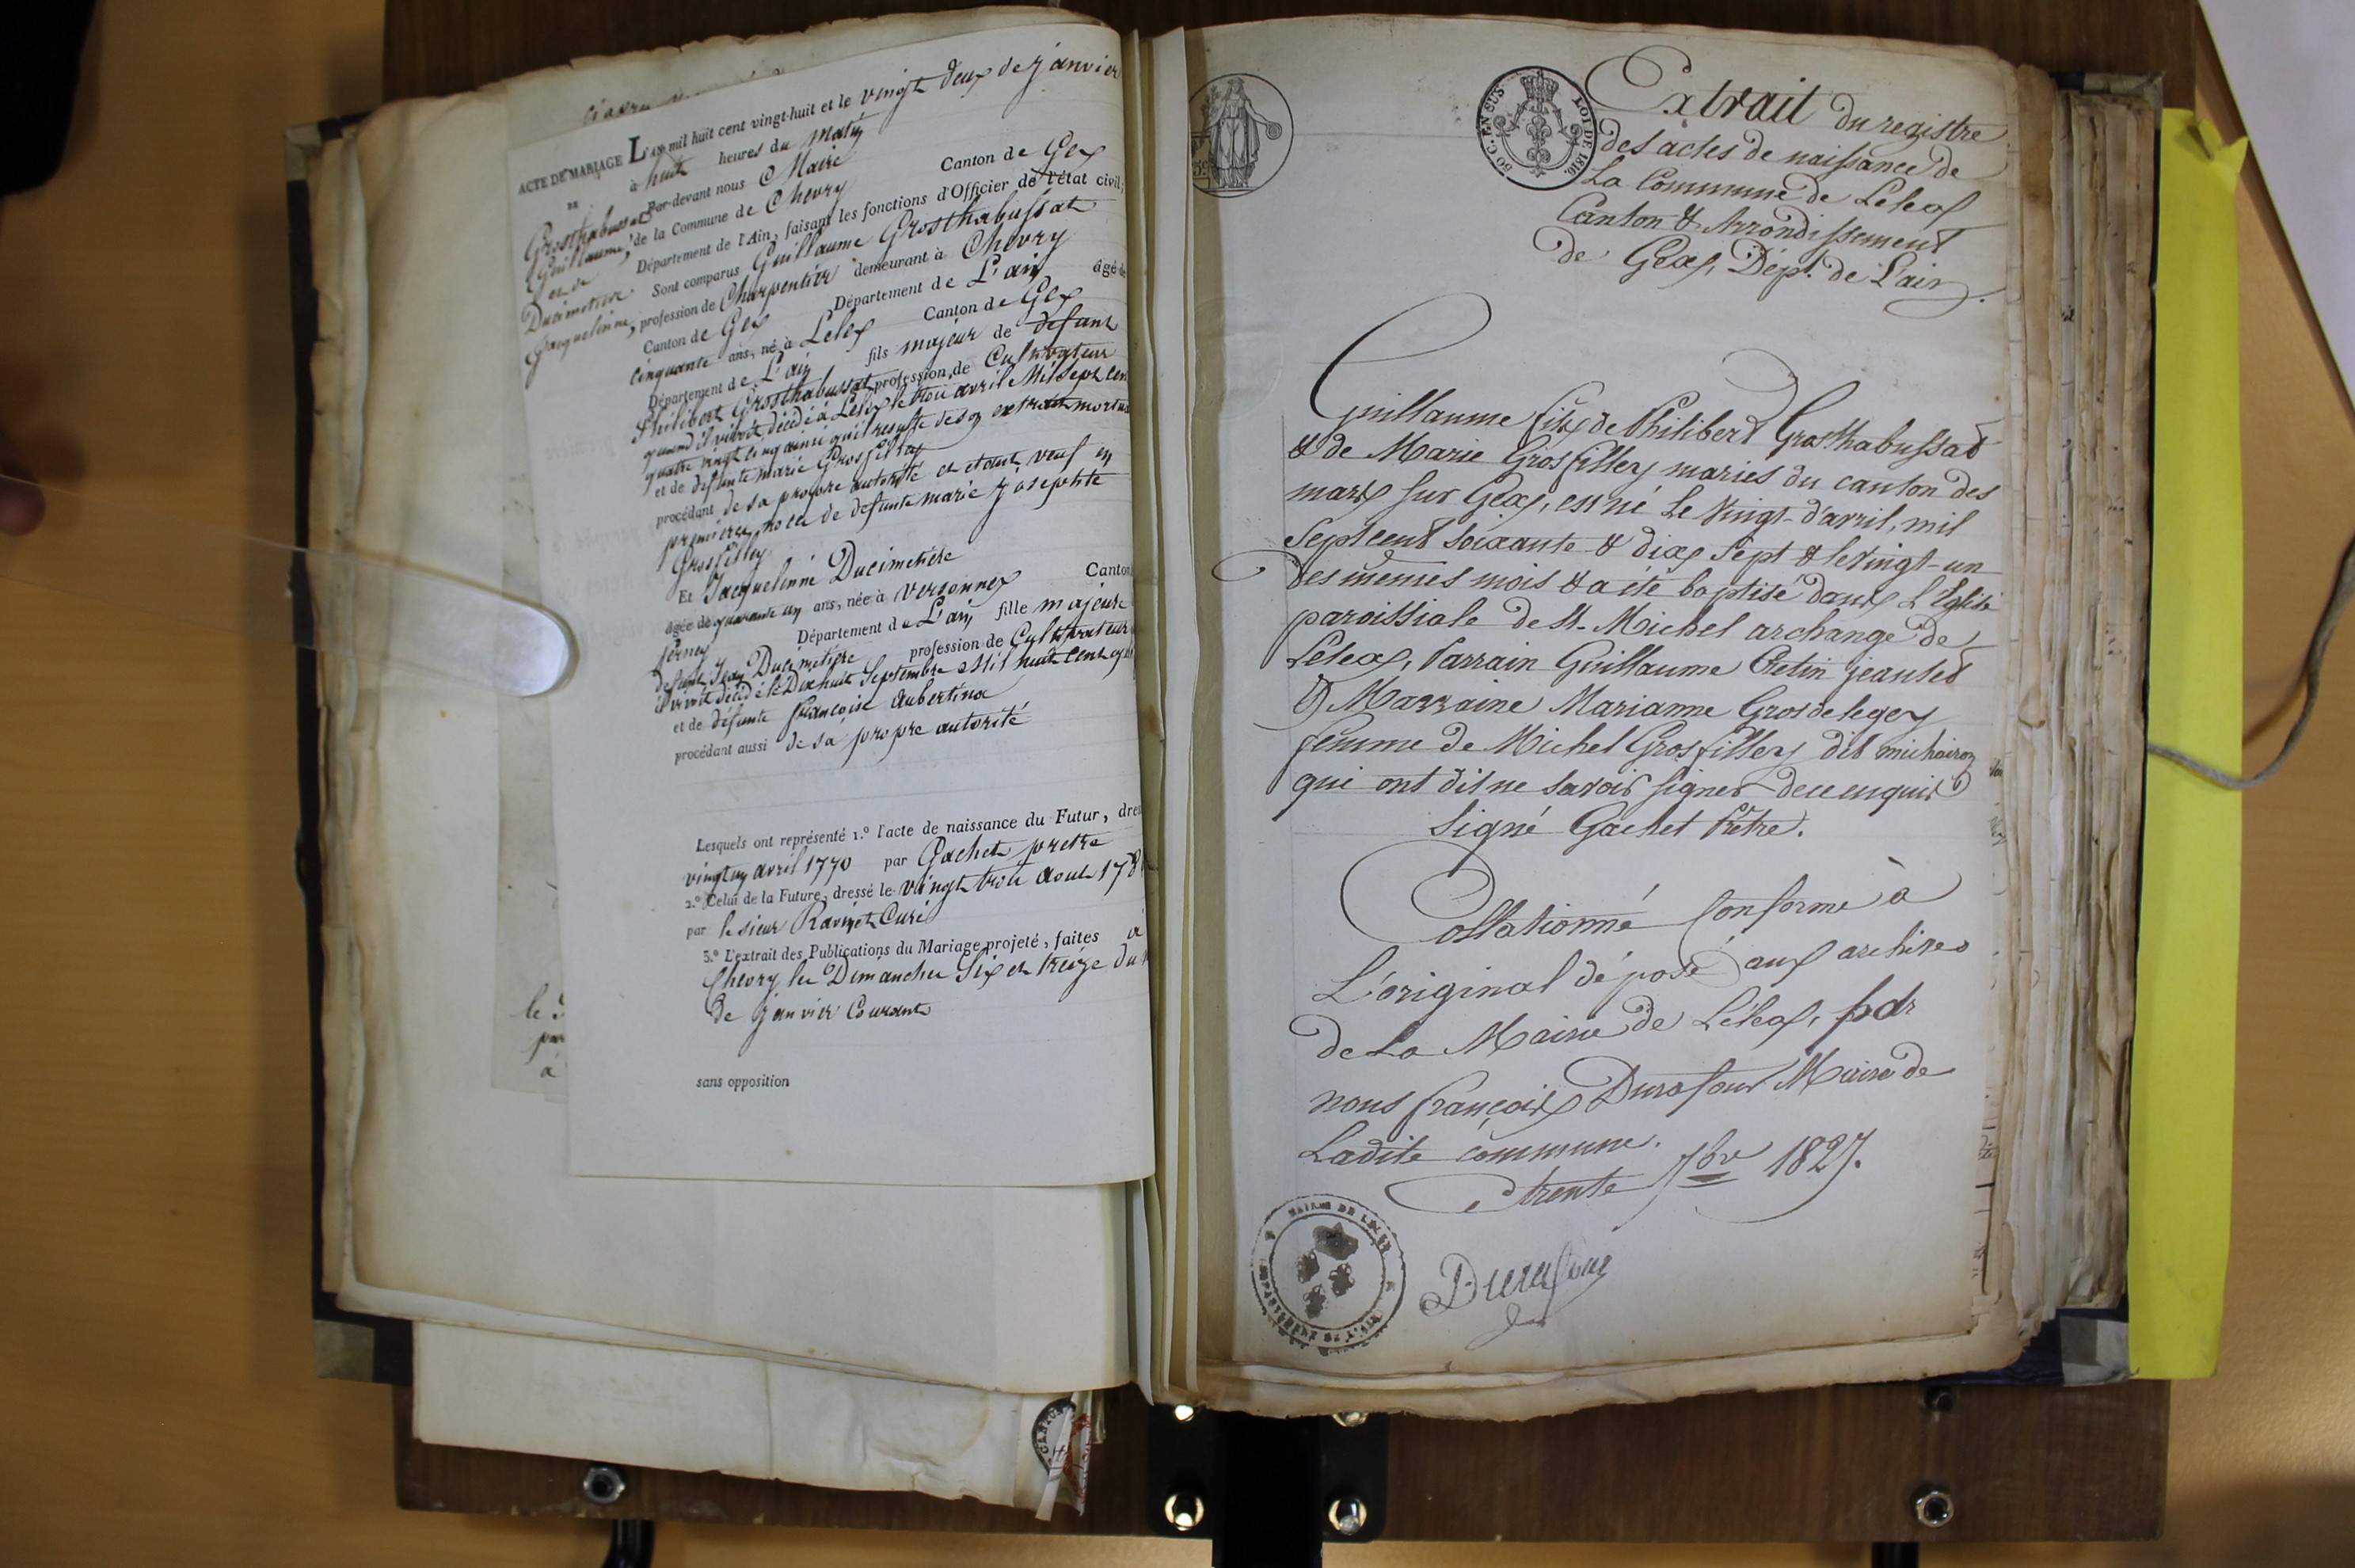 ACTE DE MARIAGE L'AN mil huit cent vingt-huit et le vingt deux de janvier
à huit heures du matin
DE
Par-devant nous Maire
de la Commune de Chevry Canton de Gex
Département de l'Ain, faisant les fonctions d'Officier de l'état civil;
Grosthabussat
Guillaume,
et de
Ducimetière
Jacquelinne,
Sont comparus Guillaume Grosthabussat
profession de Charpentier demeurant à Chevry
Canton de Gex Département de L'ain âgé de
cinquante ans, né à Lelex Canton de Gex
Département de L'ain fils majeur de defunt
Philibert Grosthabussat profession de Cultivateur
quand il vivoit décédé à Lelex le troi avril Mil sept cen
quatre vingt cinq ainsi qu'il resulte de son extrait mortu
et de defunte Marie Grosfilley
procédant de sa propre autorité et etant veuf en
premieres noces de defunte marie josephte
Grosfilley
Et Jacquelinne Ducimetière
âgée de quarante un ans, née à Versonnex Canton
ferney Département de L'ain fille majeure
defunt Jean Ducimetière profession de Cultivateur
il vivoit décédé le Dix huit Septembre Mil huit cent
et de défunte francoise Aubertine
procédant aussi de sa propre autorité
Lesquels ont représenté 1.º l'acte de naissance du Futur, dre
vingt un avril 1770 par Gachet pretre
2.º Celui de la Future, dressé le vingt troi aout 178
par le sieur Ravinet Curé
3.º L'extrait des Publications du Mariage projeté, faites à
Chevry les Dimanches Six et treize du
de janvier Courant
sans opposition
le
par
à
50 C. EN SUS
LOI DE 1816.
Extrait du registre
des actes de naissance de
La Commune de Lelex
Canton & Arrondissement
de Gex, Dépt. de L'ain.
Guillaume fils de Philibert Grosthabussat
& de Marie Grosfilley maries du canton des
marx sur Gex, est né Le Vingt d'avril, mil
sept cent soixante & dix sept & le vingt-un
des mêmes mois & a été baptisé dans L'Eglise
paroissiale de St. Michel archange de
Lelex, Parrain Guillaume Cretin jeantet
& Marraine Marianne Grosdelegey
femme de Michel Grosfilley dit michoiron
qui ont dit ne savoir signer de ce enquis
Signé Gachet Prêtre.
Collationné Conforme à
L'original déposé aux archives
de La Mairie de Lelex, par
nous françois Durafour Maire de
Ladite commune.
trente 7bre 1827.
MAIRIE DE LELEX
Durafour